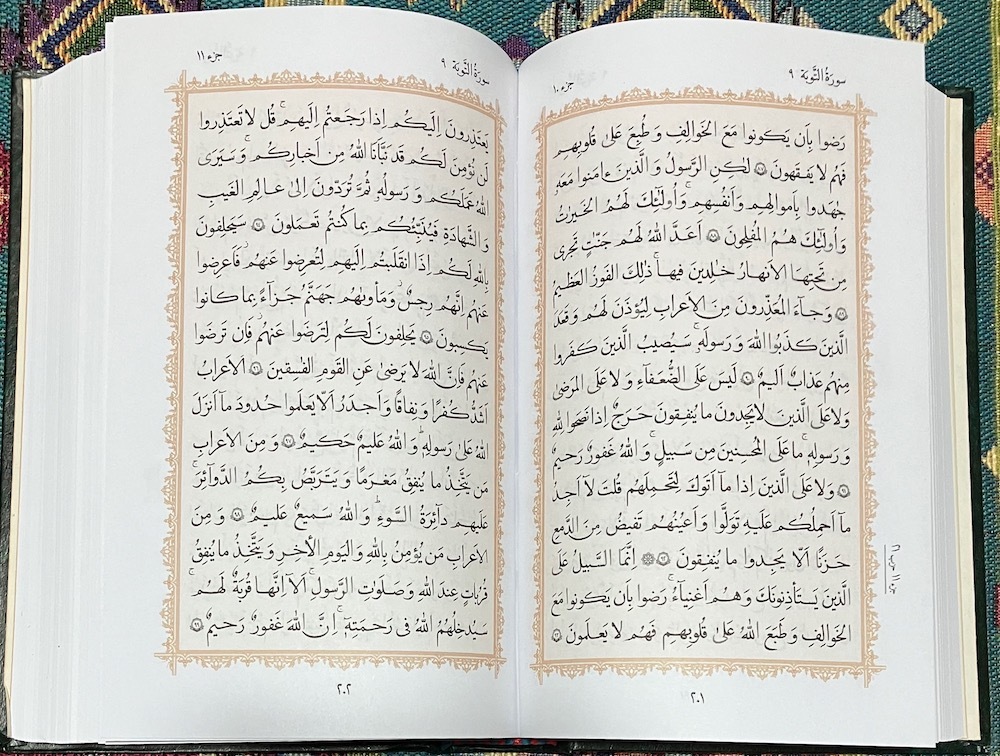 سورة التّوبة ٩
جزء ١٠
رَضوا بِأَن يَكونوا مَعَ الخَوالِفِ وَ طُبِعَ عَلىٰ قُلوبِهِم
فَهُم لا يَفقَهونَ ۝ لٰكِنِ الرَّسولُ وَ الَّذينَ ءامَنوا مَعَهٗ
جٰهَدوا بِاَموالِهِم وَاَنفُسِهِم ۚ وَاُولٰئِكَ لَهُمُ الخَيرٰتُ
وَ اُولٰئِكَ هُمُ المُفلِحونَ ۝ اَعَدَّ اللهُ لَهُم جَنّٰتٍ تَجرى
مِن تَحتِهَا الاَنهارُ خٰلِدينَ فيها ۚ ذٰلِكَ الفَوزُ العَظيمُ
۝ وَ جاءَ المُعَذِّرونَ مِنَ الاَعرابِ لِيُؤذَنَ لَهُم وَ قَعَدَ
الَّذينَ كَذَبُوا اللهَ وَ رَسولَهٗ ۚ سَيُصيبُ الَّذينَ كَفَروا
مِنهُم عَذابٌ اَليمٌ ۝ لَيسَ عَلَى الضُّعَفاءِ وَ لا عَلَى المَرضىٰ
وَلا عَلَى الَّذينَ لا يَجِدونَ ما يُنفِقونَ حَرَجٌ اِذا نَصَحوا لِلّٰهِ
وَ رَسولِهٖ ۚ ما عَلَى المُحسِنينَ مِن سَبيلٍ ۚ وَ اللهُ غَفورٌ رَحيمٌ
۝ وَلا عَلَى الَّذينَ اِذا ما اَتَوكَ لِتَحمِلَهُم قُلتَ لا اَجِدُ
ما اَحمِلُكُم عَلَيهِ تَوَلَّوا وَ اَعيُنُهُم تَفيضُ مِنَ الدَّمعِ
حَزَنًا اَلّا يَجِدوا ما يُنفِقونَ ۝ اِنَّمَا السَّبيلُ عَلَى
الَّذينَ يَستَأذِنونَكَ وَ هُم اَغنِياءُ ۚ رَضوا بِاَن يَكونوا مَعَ
الخَوالِفِ وَ طَبَعَ اللهُ عَلىٰ قُلوبِهِم فَهُم لا يَعلَمونَ ۝
٢٠١
سورة التّوبة ٩
جزء ١١
يَعتَذِرونَ اِلَيكُم اِذا رَجَعتُم اِلَيهِم ۚ قُل لا تَعتَذِروا
لَن نُؤمِنَ لَكُم قَد نَبَّاَنَا اللهُ مِن اَخبارِكُم ۚ وَ سَيَرَى
اللهُ عَمَلَكُم وَ رَسولُهٗ ثُمَّ تُرَدّونَ اِلىٰ عالِمِ الغَيبِ
وَ الشَّهادَةِ فَيُنَبِّئُكُم بِما كُنتُم تَعمَلونَ ۝ سَيَحلِفونَ
بِاللهِ لَكُم اِذَا انقَلَبتُم اِلَيهِم لِتُعرِضوا عَنهُم ۖ فَاَعرِضوا
عَنهُم ۖ اِنَّهُم رِجسٌ ۖ وَ مَأوىٰهُم جَهَنَّمُ جَزاءً بِما كانوا
يَكسِبونَ ۝ يَحلِفونَ لَكُم لِتَرضَوا عَنهُم ۖ فَاِن تَرضَوا
عَنهُم فَاِنَّ اللهَ لا يَرضىٰ عَنِ القَومِ الفٰسِقينَ ۝ اَلاَعرابُ
اَشَدُّ كُفرًا وَ نِفاقًا وَ اَجدَرُ اَلّا يَعلَموا حُدودَ ما اَنزَلَ
اللهُ عَلىٰ رَسولِهٖ ۗ وَ اللهُ عَليمٌ حَكيمٌ ۝ وَ مِنَ الاَعرابِ
مَن يَتَّخِذُ ما يُنفِقُ مَغرَمًا وَ يَتَرَبَّصُ بِكُمُ الدَّوائِرَ ۚ
عَلَيهِم دائِرَةُ السَّوءِ ۗ وَ اللهُ سَميعٌ عَليمٌ ۝ وَ مِنَ
الاَعرابِ مَن يُؤمِنُ بِاللهِ وَ اليَومِ الأخِرِ وَ يَتَّخِذُ ما يُنفِقُ
قُرُباتٍ عِندَ اللهِ وَ صَلَوٰتِ الرَّسولِ ۚ اَلا اِنَّها قُربَةٌ لَهُم ۚ
سَيُدخِلُهُمُ اللهُ فى رَحمَتِهٖ ۗ اِنَّ اللهَ غَفورٌ رَحيمٌ ۝
٢٠٢